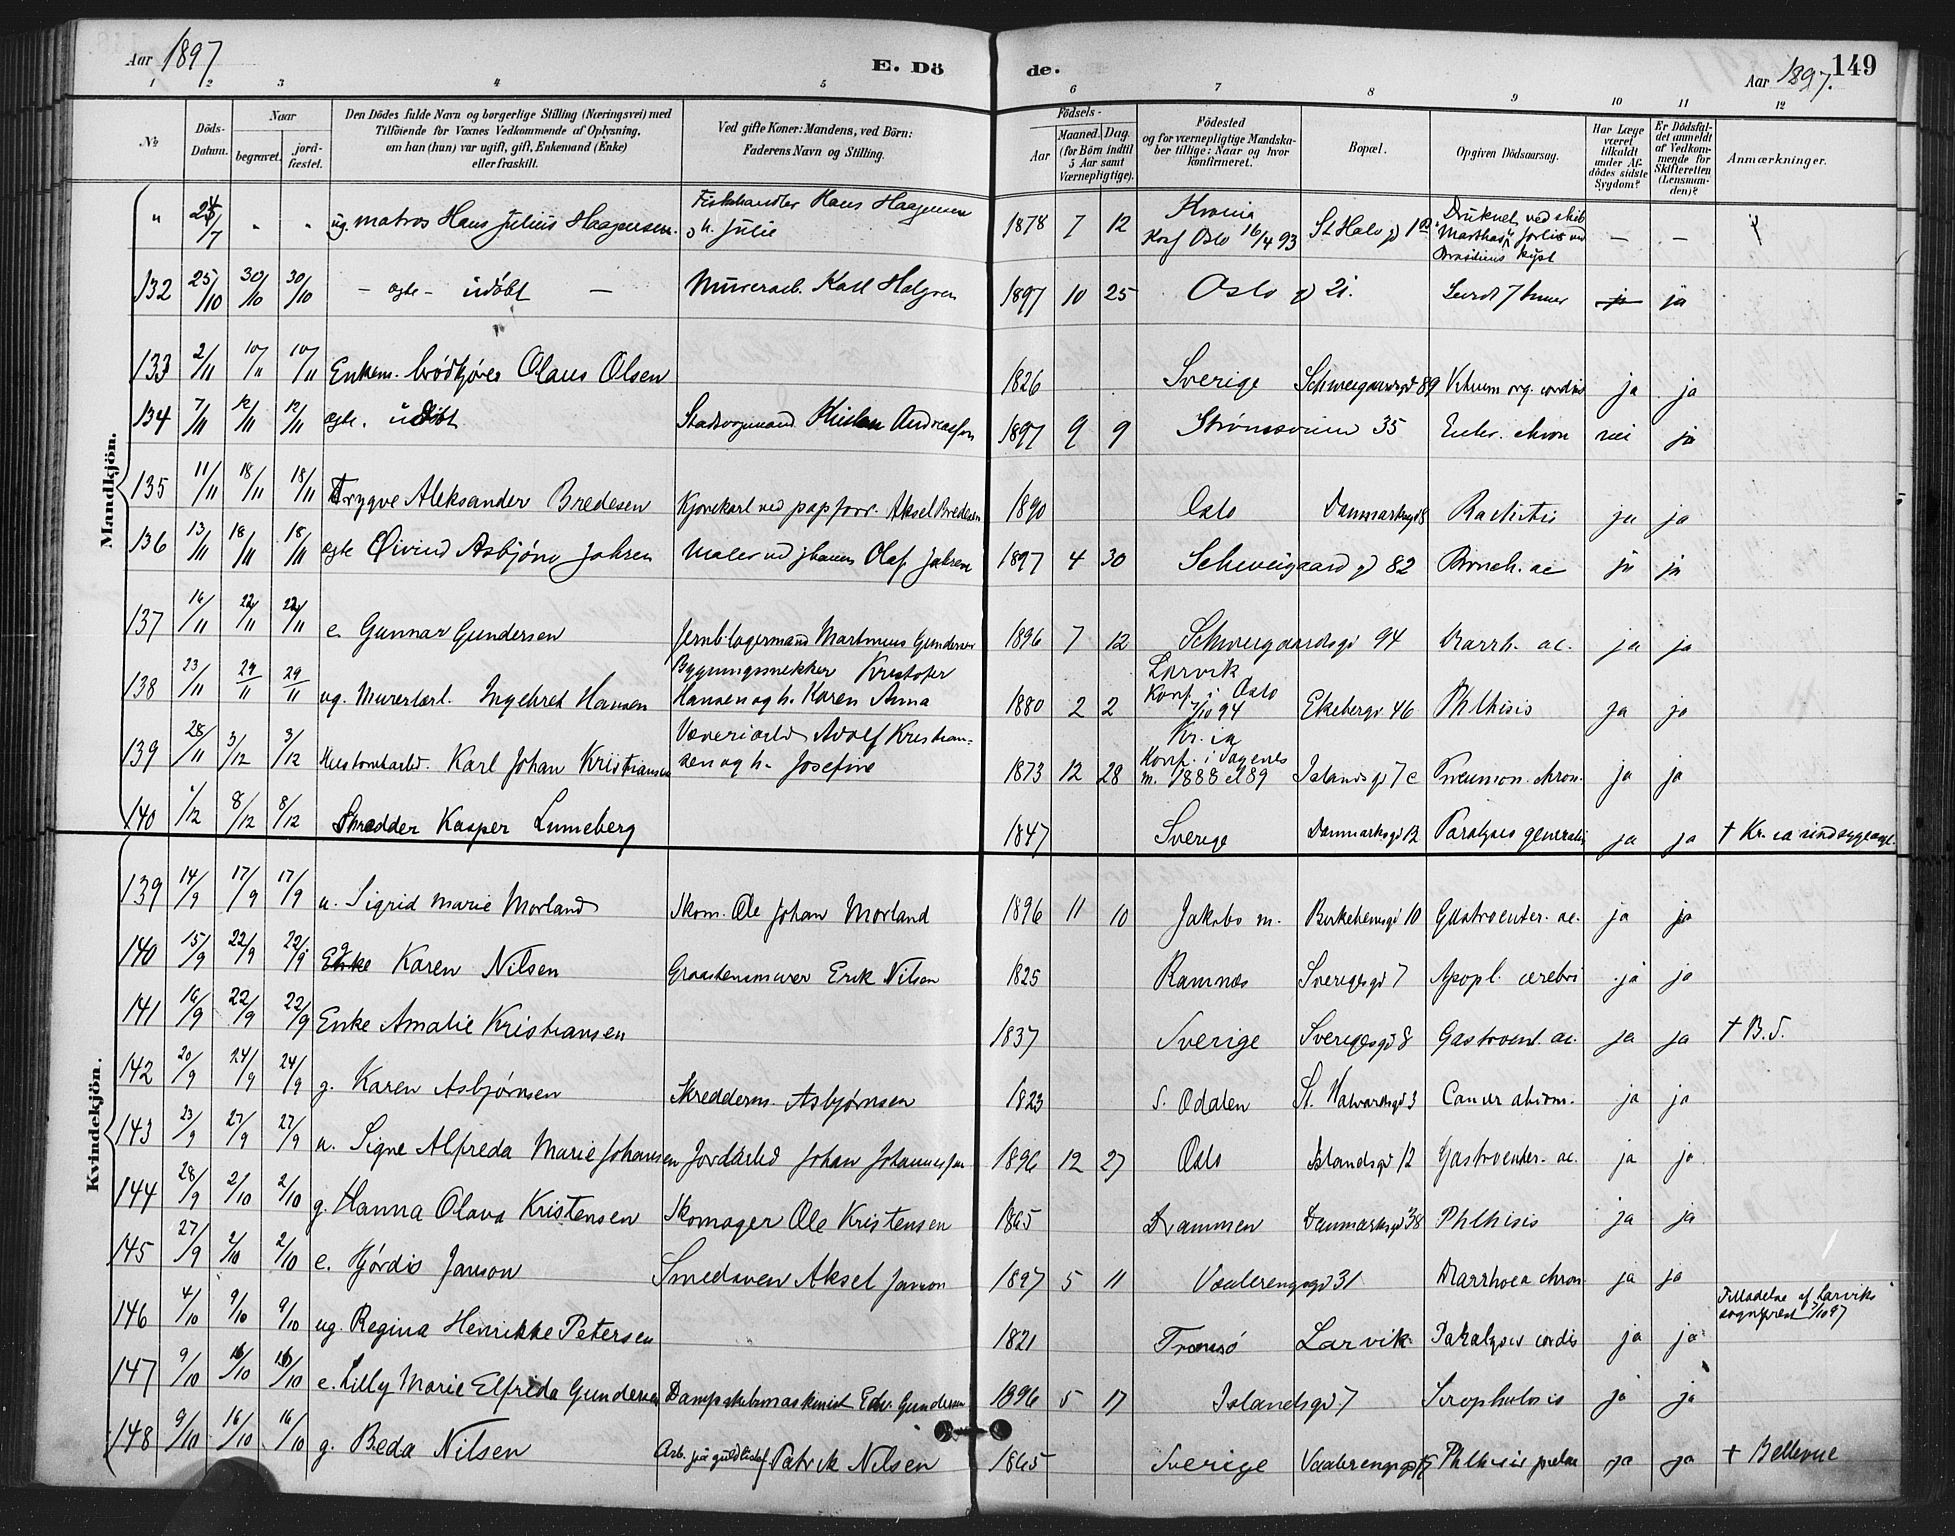 Aar 1897
E. Döde.
Aar 1897. 149
1 2 3 4 5 6 7 8 9 10 11 12
No.
Döds-Datum.
Naar
begravet.
jord-fæstet.
Den Dödes fulde Navn og borgerlige Stilling (Næringsvei) med
Tilföiende for Voxnes Vedkommende af Oplysning,
om han (hun) var ugift, gift, Enkemand (Enke)
eller fraskilt.
Ved gifte Koner: Mandens, ved Börn:
Faderens Navn og Stilling.
Födsels-
Aar
Maaned. Dag.
(for Börn indtil
5 Aar samt
Værnepligtige).
Födested
og for værnepligtige Mandska-
ber tillige: Naar og hvor
konfirmeret.
Bopæl.
Opgiven Dödsaarsag.
Har Læge
været
tilkaldt
under Af-
dödes sidste
Sygdom?
Er Dödsfal-
det anmeldt
af Vedkom-
mende for
Skifteretten
(Lensman-
den)?
Anmærkninger.
Mandkjön.
" 24/7 " " ug. matros Hans Julius Haagensen. Fiskehandler Hans Haagensen o h. Julie 1878 7 12 Kr.ania Konf Oslo 16/4 93 Druknet ved skib forlis ved kyst — —
132 25/10 30/10 30/10 – ægte – udöbt — Murerarb. Karl 1897 10 25 Oslo g 21. Levede 7 timer ja ja
133 2/11 10/11 10/11 Enkem. brödkjører Olaus Olsen 1826 Sverige Schweigaardsgd 89 Vitium org. cordis ja ja
134 7/11 12/11 12/11 ægte. udöbt Andreassen 1897 9 9 Strømsveien 35 Enter. chron nei ja
135 11/11 18/11 18/11 Trygve Aleksander Bredesen Kjørekarl ved papforr. Aksel Bredesen 1890 Oslo Danmarksgd 8 Rachitis ja ja
136 13/11 18/11 18/11 ægte Øivind Asbjørn Jahren Maler ved jbanen Olaf Jahren 1897 4 30 Schweigaard gd 82 Bronch. ac ja ja
137 16/11 22/11 22/11 e. Gunnar Gundersen Jernb.lagermand Martinius Gundersen 1896 7 12 Schweigaardsgd 94 Diarrh. ac. ja ja
138 23/11 29/11 29/11 ug. Murerlærl. Ingebret Hansen Bygningssnekker Kristofer Hansen og h. Karen Anna 1880 2 2 Larvik Konf. i Oslo 7/10 94 Ekebergv 46 Phthisis ja ja
139 28/11 3/12 3/12 Karl Johan Kristiansen Væveriarbd Adolf Kristian-sen og h. Josefine 1873 12 28 Kr.ia Konf. i Sagenes m. 1888 el 89 Islandsgd 7 c Pneumon. chron. ja ja
140 1/12 8/12 8/12 Skredder Kasper Lunneberg 1847 Sverige Danmarksgd 12 Paralyses generalis ja ja † Kr. ia sindsygeasyl.
Kvindekjön.
139 14/9 17/9 17/9 u. Sigrid Marie Morland Skom. Ole Johan Morland 1896 11 10 Jakobs m. Birkebeinsgd 10 Gastroenter. ac. ja ja
140 15/9 22/9 22/9 Enke Karen Nilsen Graastensmurer Erik Nilsen 1825 Ramnæs Sverigesgd 7 Apopl. cerebri ja ja
141 16/9 22/9 22/9 Enke Amalie Kristiansen 1837 Sverige Sverigesgd 8 Gastroent. ac. ja ja † B.S.
142 20/9 24/9 24/9 g. Karen Asbjørnsen Skredderm. Asbjørnsen 1823 S. Odalen St. Halvardsgd 3 Cancer abdom. ja ja
143 23/9 27/9 27/9 u. Signe Alfreda Marie Johansen Jordarbd Johan Johannessen 1896 12 27 Oslo Islandsgd 12 Gastroenter. ac. ja ja
144 28/9 2/10 2/10 g. Hanna Olava Kristensen Skomager Ole Kristensen 1865 Drammen Danmarksgd 38 Phthisis ja ja
145 27/9 2/10 2/10 e. Hjørdis Janson Smedsven Aksel Janson 1897 5 11 Vaalerengsgd 31 Diarrhoea chron ja ja
146 4/10 9/10 9/10 ug. Regina Henrikke Petersen 1821 Tromsö Larvik Paralyses cordis ja ja Tilladelse af Larviks sogneprest 7/10 97
147 9/10 16/10 16/10 e. Lilly Marie Elfreda Gundersen Dampskibsmaskinist Edv. Gundersen 1896 5 17 Islandsgd 7 Scrophulosis ja ja
148 9/10 16/10 16/10 g. Beda Nilsen Arb. paa guldlistef Patrik Nilsen 1865 Sverige Vaalerengsgd Phthisis pulm ja ja † Bellevue